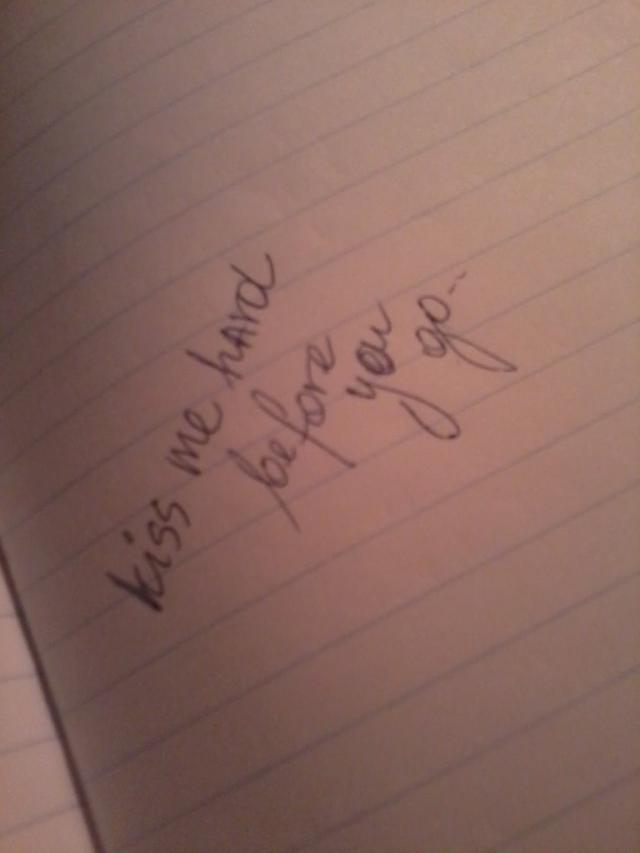 kiss me hard
before
you
go..